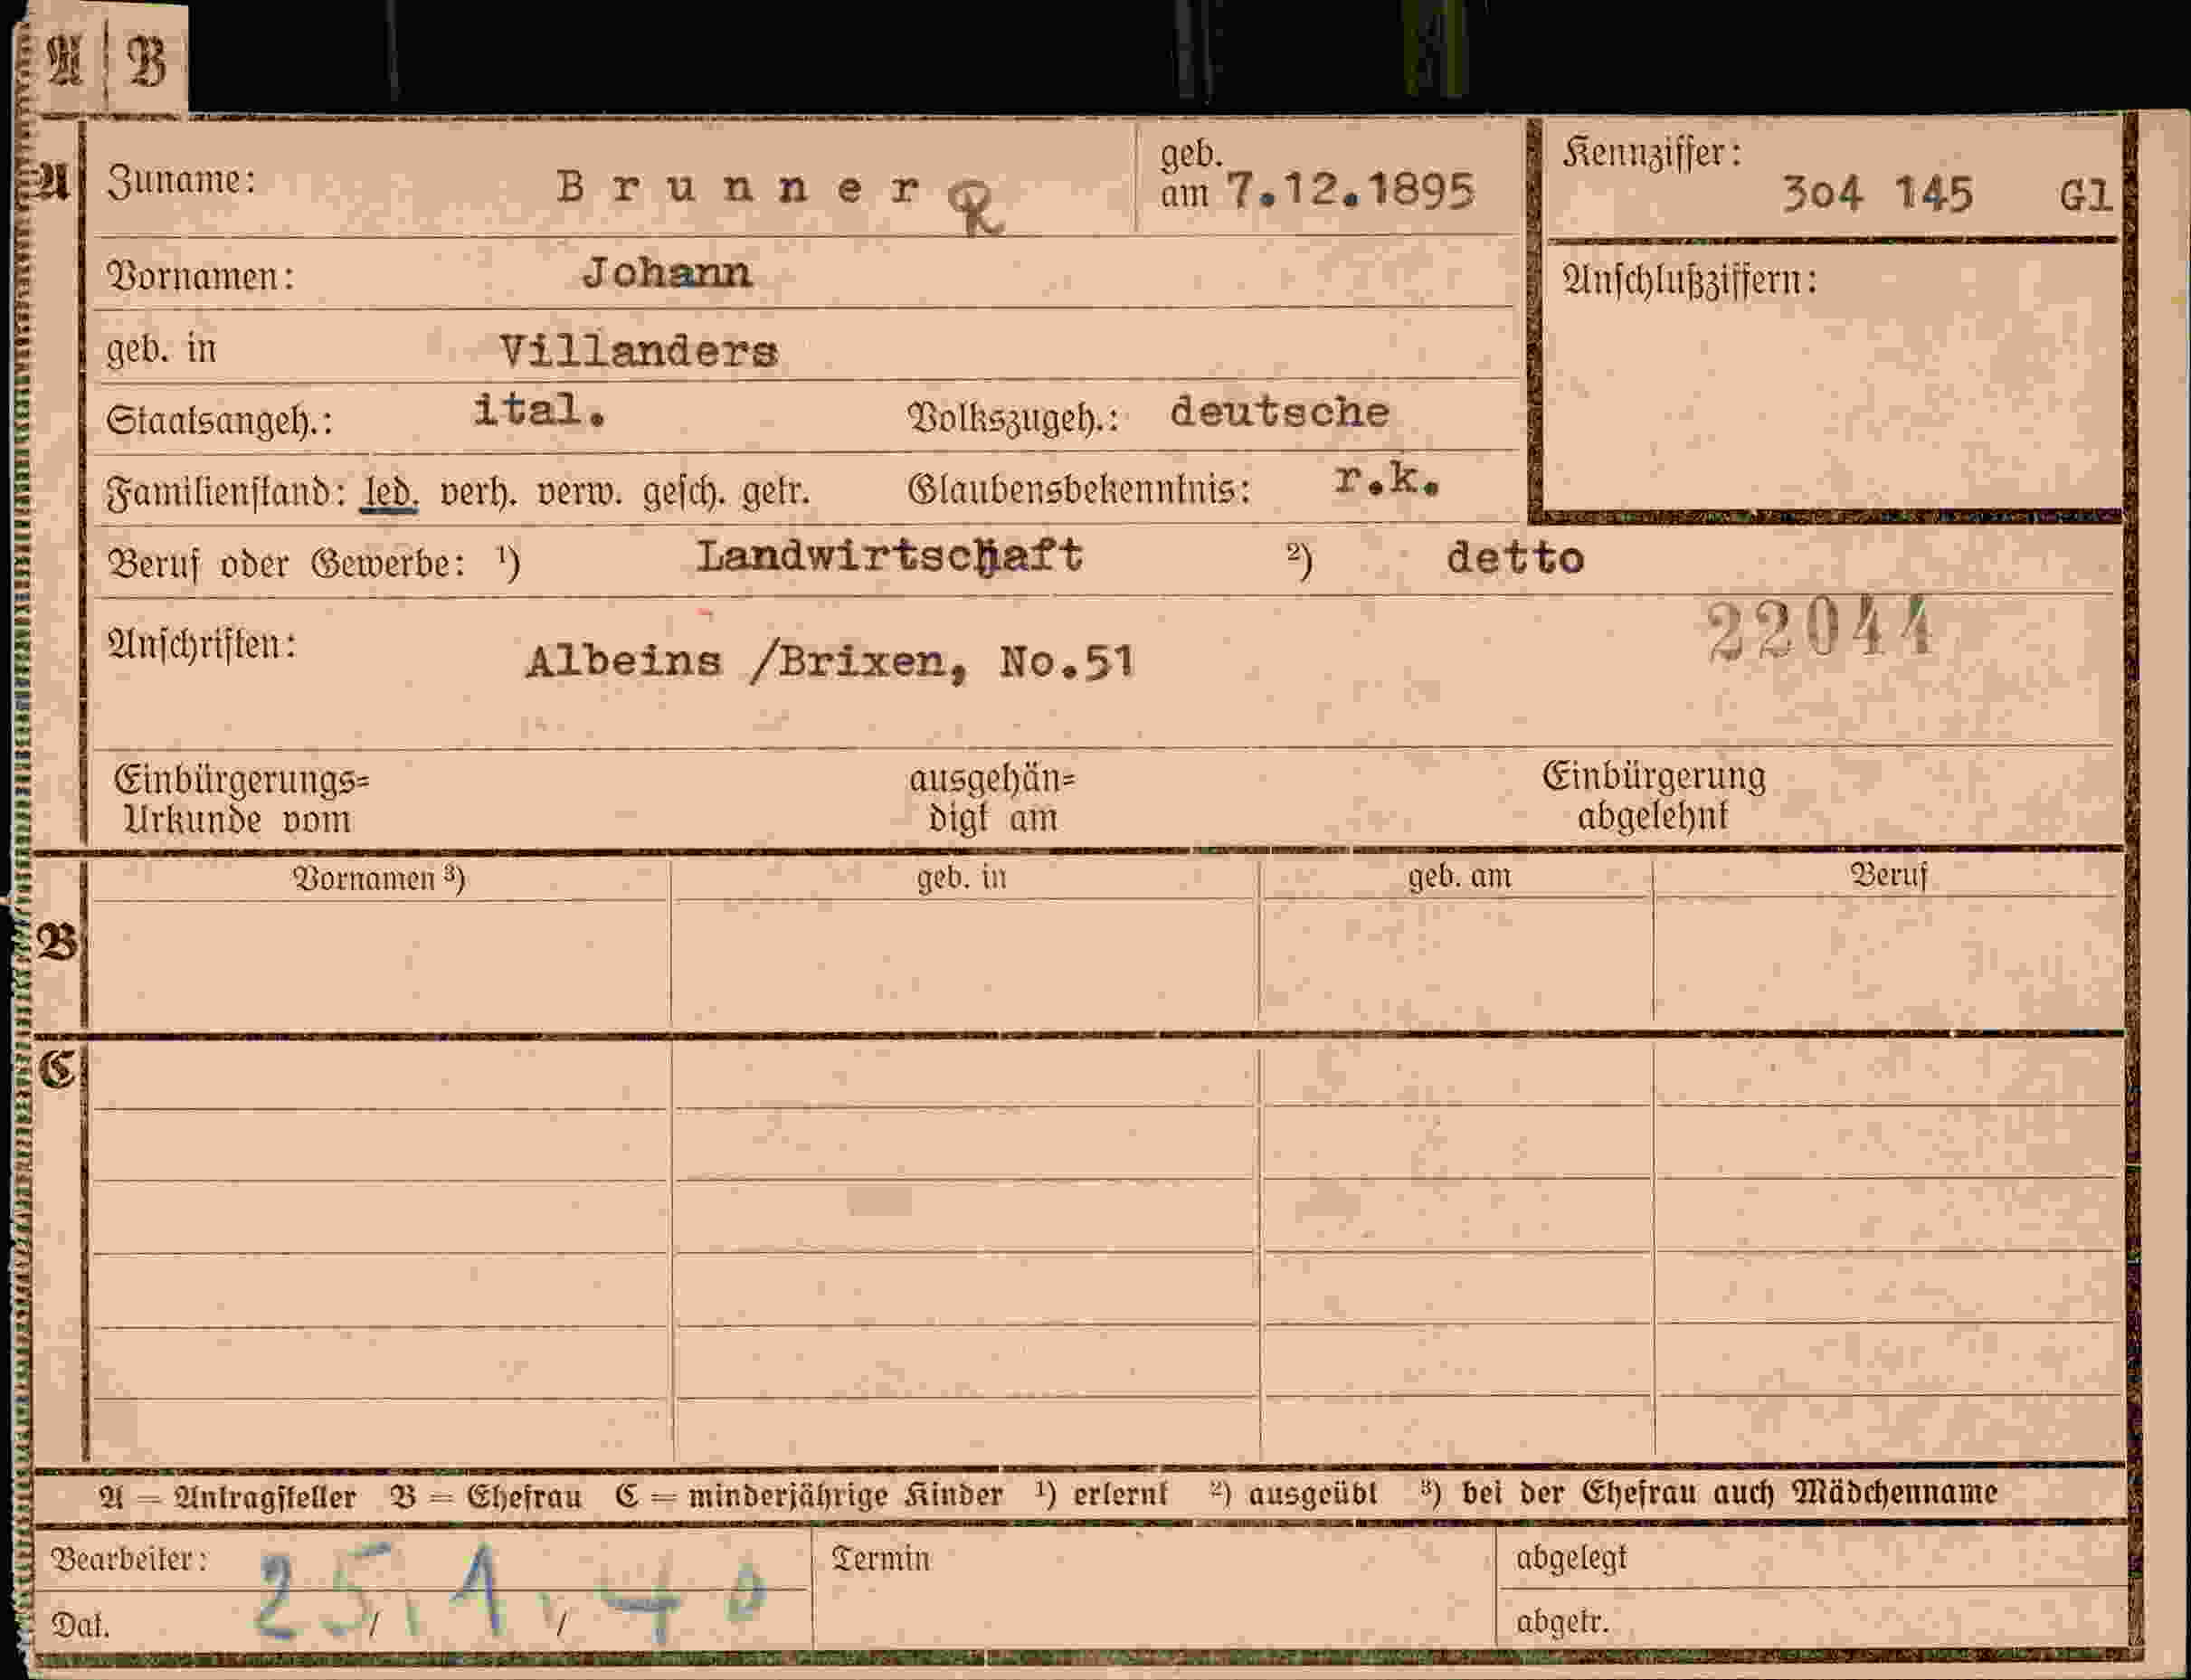 A B
A Zuname: Brunner R geb. am 7.12.1895 Kennziffer: 3o4 145 Gl
Vornamen: Johann Anschlußziffern:
geb. in Villanders
Staatsangeh.: ital. Volkszugeh.: deutsche
Familienstand: led. verh. verw. gesch. getr. Glaubensbekenntnis: r.k.
Beruf oder Gewerbe: ¹) Landwirtschaft ²) detto
22044
Anschriften: Albeins /Brixen, No.51
Einbürgerungs= ausgehän= Einbürgerung
Urkunde vom digt am abgelehnt
Vornamen ³) geb. in geb. am Beruf
B
C
A = Antragsteller B = Ehefrau C = minderjährige Kinder ¹) erlernt ²) ausgeübt ³) bei der Ehefrau auch Mädchenname
Bearbeiter: Termin abgelegt
Dat. 25. / 1. / 40 abgetr.